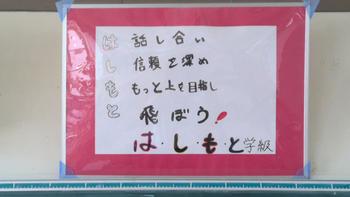 は 話し合い
し 信頼を深め
も もっと上を目指し
と 飛ぼう!
は・し・も・と学級